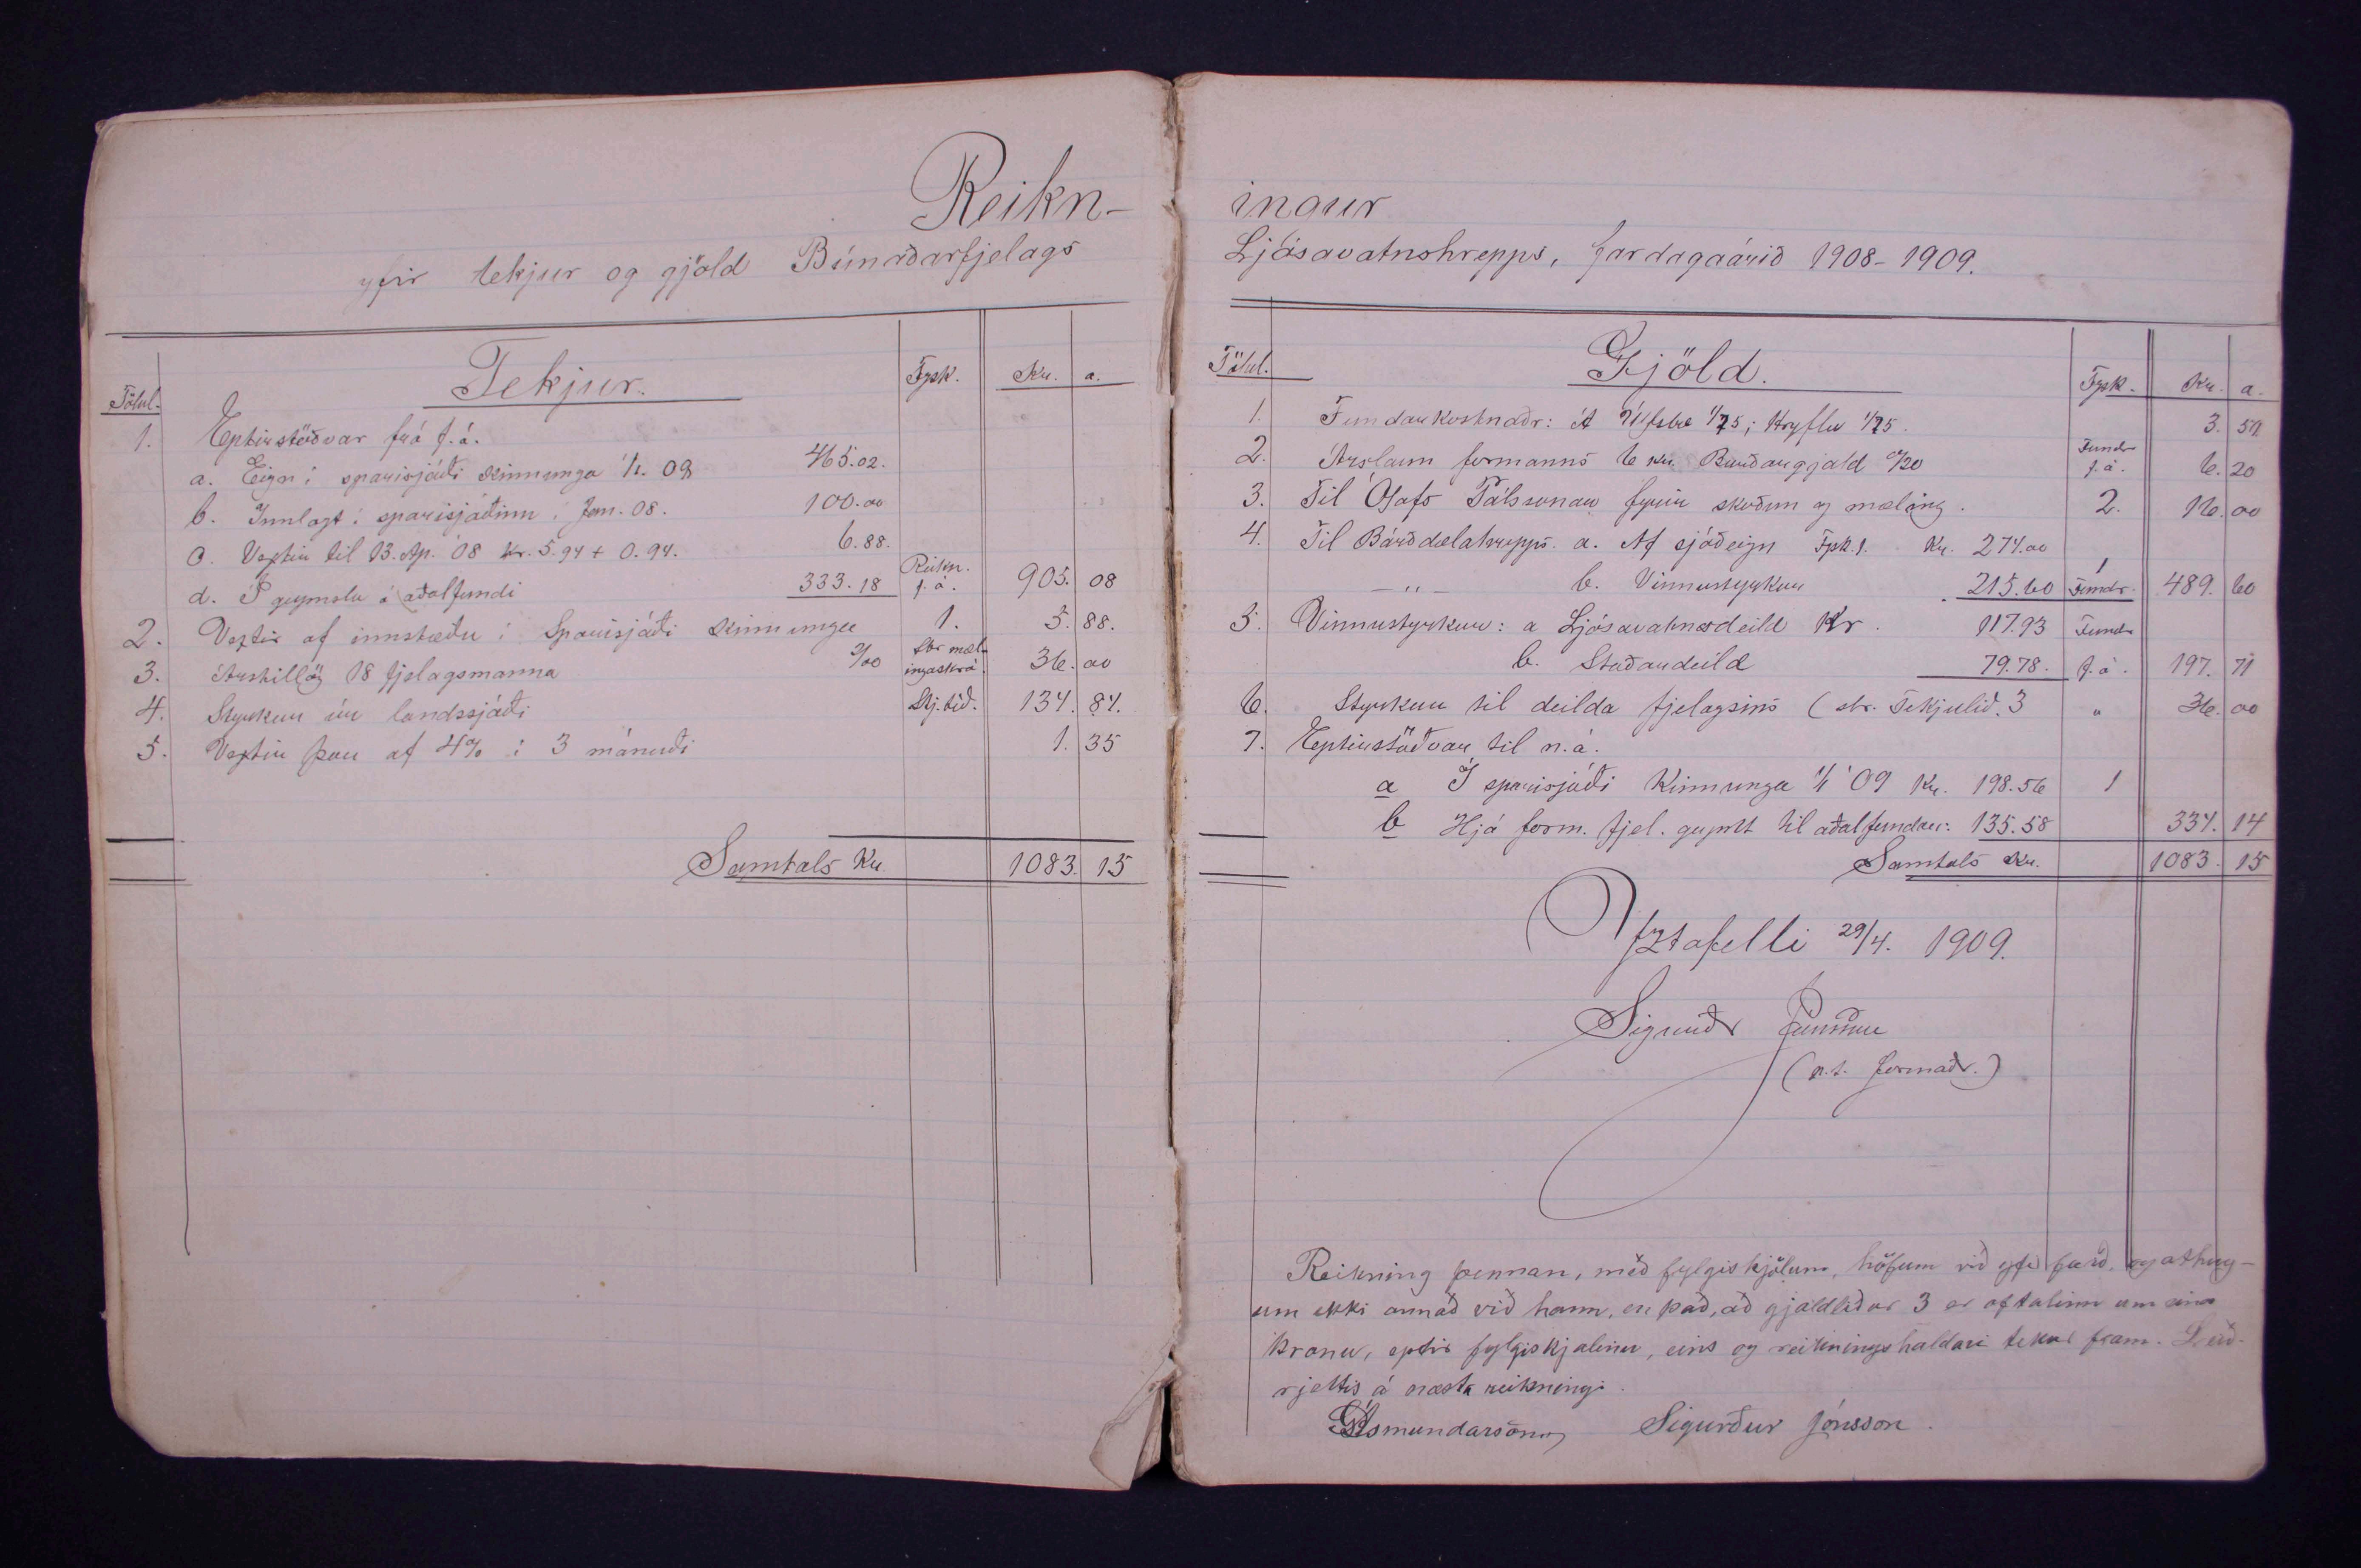 Reikn-
yfir tekjur og gjöld Búnaðarfjelags
Tölul. Tekjur. Fysk. Kr. a.
1. Eptirstöðvar frá f.á.
a. Eign í sparisjóði Kinnunga 1/1. 08 465.02.
b. Innlagt í sparisjóðinn í Jan. 08. 100.00
c. Vextir til 13. Ap. 08 kr. 5.94 + 0.94. 6.88.
d. Í geymslu á aðalfundi 333.18 Reikn. f.á. 905. 08
2. Vextir af innstæðu í Sparisjóði Kinnunga 1. 5. 88.
3. Árstillög 18 fjelagsmanna 2/00 sbr mæl-ingaskrá. 36. 00
4. Styrkur úr landssjóði Stj.tíð. 134. 84.
5. Vextir þar af 4% í 3 mánuði 1. 35
Samtals Kr. 1083. 15
ingur
Ljósavatnshrepps, fardagaárið 1908-1909.
Tölul. Gjöld. Fysk. Kr. a.
1. Fundarkostnaðr: Á 1/75; Hryflu 1/75. 3. 50
2. Árslaun formanns 6 kr. Burðargjald 0/20 Fundr f.á. 6. 20
3. Til Ólafs Pálssonar fyrir skoðun og mæling. 2. 16. 00
4. Til Bárðdælahrepps. a. Af sjóðeign Fysk.1. Kr. 274.00
- " - b. Vinnustyrkur 215.60 1 Fundr. 489. 60
5. Vinnustyrkur: a Ljósavatnsdeild Kr. 117.93 Fundr
b. Staðardeild 79.78. f.á. 197. 71
6. Styrkur til deilda fjelagsins (sbr. Tekjulið. 3 " 36. 00
7. Eptirstöðvar til n.á.
a Í sparisjóði Kinnunga 1/1 '09 Kr. 198.56 1
b Hjá form. fjel. geymt til aðalfundar: 135.58 334. 14
Samtals Kr. 1083. 15
Yztafelli 29/4. 1909.
Sigurðr Jónsson
(n.t. formaðr.)
Reikning þennan, með fylgiskjölum, höfum við yfir farið, og athug-
um ekki annað við hann, en það, að gjaldliður 3 er oftalinn um eina
krónu, eptir fylgiskjalinu, eins og reikningshaldari tekur fram. Leið-
rjettis á næsta reikningi.
GÁsmundarson Sigurður Jónsson.